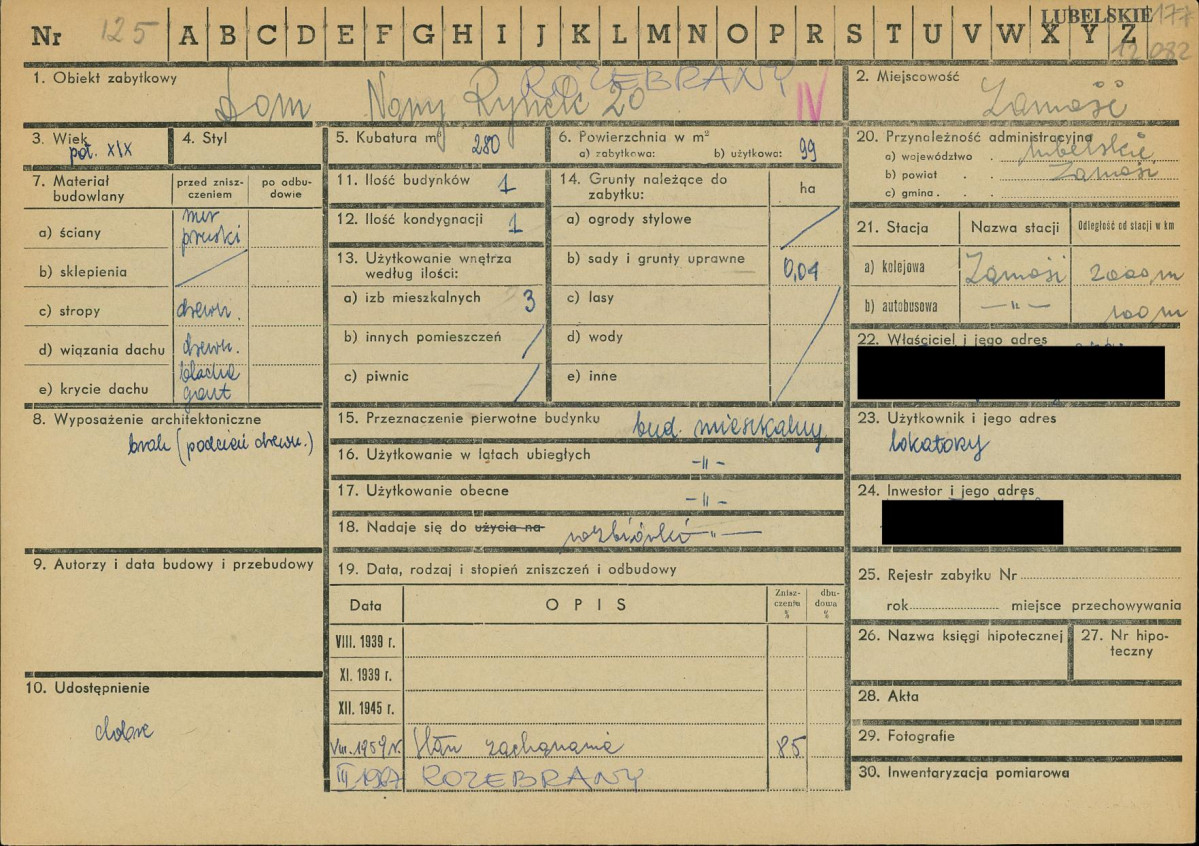 Nr 125 A B C D E F G H I J K L M N O P R S T U V W X Y Z
LUBELSKIE 177
12 082
1. Obiekt zabytkowy
ROZEBRANY
Dom Nowy Rynek 20 IV
2. Miejscowość
Zamość
3. Wiek
poł. XIX
4. Styl
5. Kubatura m³ 280
6. Powierzchnia w m²
a) zabytkowa: b) użytkowa: 99
20. Przynależność administracyjna
a) województwo . lubelskie
b) powiat . . Zamość
c) gmina . .
7. Materiał budowlany
przed zniszczeniem
po odbudowie
a) ściany mur pruski
b) sklepienia
c) stropy drewn.
d) wiązania dachu drewn.
e) krycie dachu blacha gont
11. Ilość budynków 1
12. Ilość kondygnacji 1
13. Użytkowanie wnętrza według ilości:
a) izb mieszkalnych 3
b) innych pomieszczeń
c) piwnic
14. Grunty należące do zabytku:
ha
a) ogrody stylowe
b) sady i grunty uprawne 0,04
c) lasy
d) wody
e) inne
21. Stacja Nazwa stacji Odległość od stacji w km
a) kolejowa Zamość 2000 m
b) autobusowa —"— 100 m
22. Właściciel i jego adres
8. Wyposażenie architektoniczne
brak (podcień drewn.)
15. Przeznaczenie pierwotne budynku bud. mieszkalny
16. Użytkowanie w latach ubiegłych -"-
17. Użytkowanie obecne -"-
18. Nadaje się do użycia na rozbiórki —"—
23. Użytkownik i jego adres
lokatorzy
24. Inwestor i jego adres
9. Autorzy i data budowy i przebudowy
19. Data, rodzaj i stopień zniszczeń i odbudowy
Data OPIS Zniszczenia % dbudowa %
VIII. 1939 r.
XI. 1939 r.
XII. 1945 r.
VIII. 1959 r. Stan zachowania 85
III 1967 ROZEBRANY
25. Rejestr zabytku Nr
rok miejsce przechowywania
26. Nazwa księgi hipotecznej
27. Nr hipoteczny
10. Udostępnienie
dobre
28. Akta
29. Fotografie
30. Inwentaryzacja pomiarowa